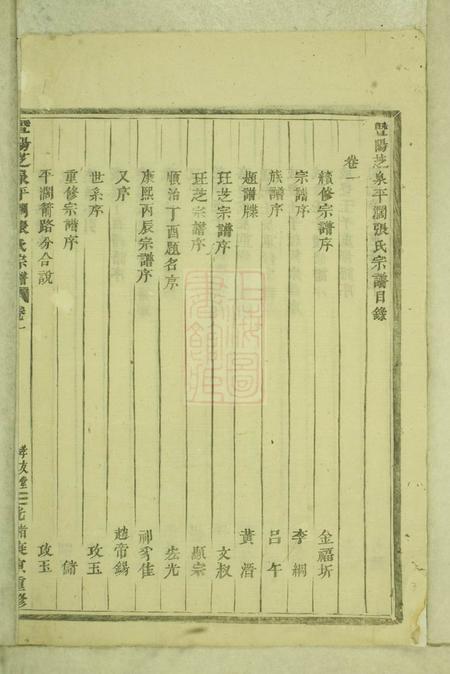 暨陽芝泉平濶張氏宗譜目錄
卷一
續修宗譜序 金福圻
宗譜序 李綱
族譜序 呂午
題譜牒 黃溍
玨芝宗譜序 文叔
玨芝宗譜序 顯宗
順治丁酉題名序 宏光
康熙丙辰宗譜序 祁豸佳
又序 趙帝錫
世系序 攻玉
重修宗譜序 儲
平濶箭路分合說 攻玉
暨陽芝泉平濶張氏宗譜 卷一 孝友堂 光緒庚寅重修
上海圖書館藏